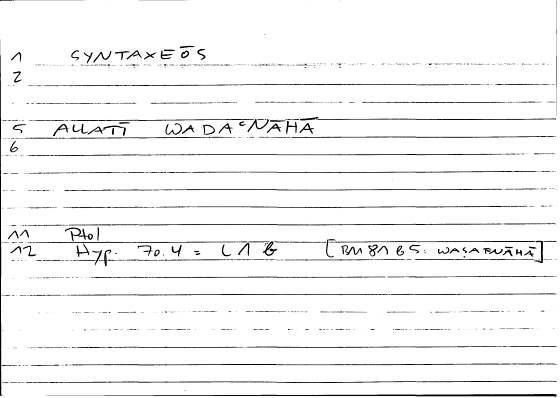 1 SYNTAXEŌS
2
5 ALLATĪ WADAʿNĀHĀ
6
11 Ptol
12 Hyp. 70.4 = L 1 B [BM 81 B 5: WAṢAFNĀHĀ]